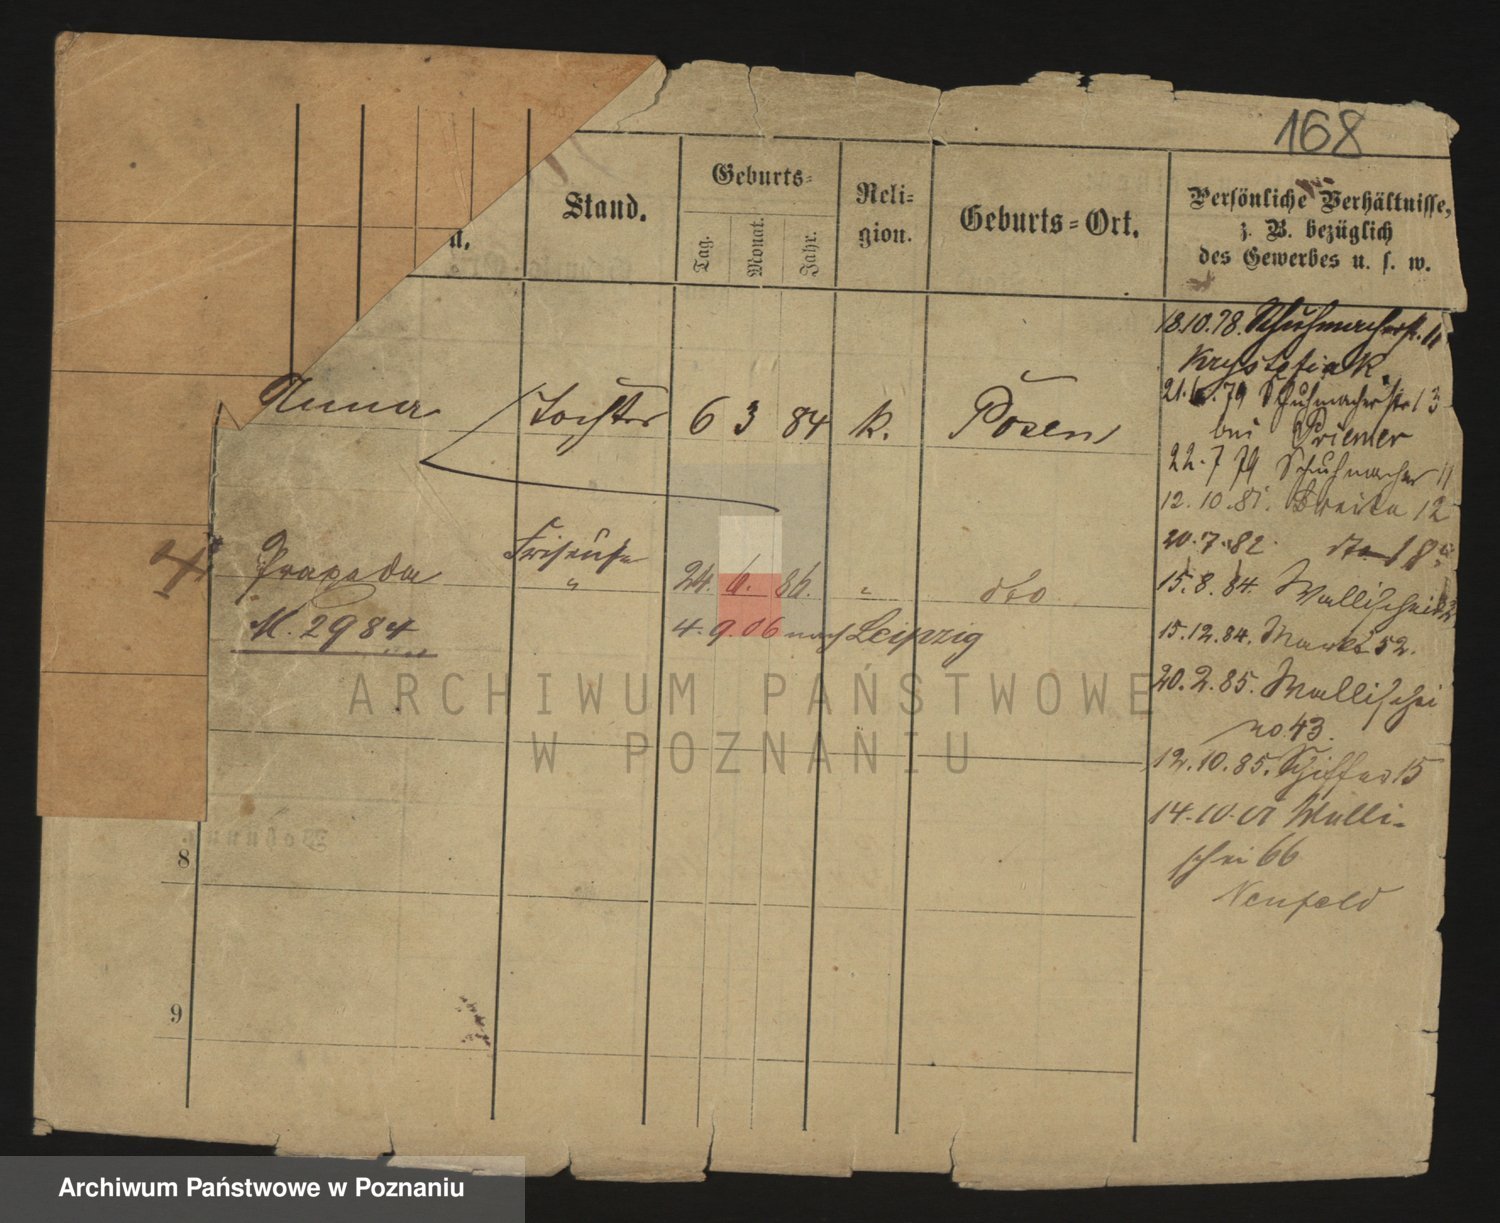 168
Stand.
Geburts-
Tag.
Monat.
Jahr.
Reli-
gion.
Geburts-Ort.
Persönliche Verhältnisse,
z. B. bezüglich
des Gewerbes u. s. w.
Anna Tochter 6 3 84 k. Posen
Praxeda Friseuse " 24. 6. 86. " dto
M. 2984
4. 9 06 nach Leipzig
18.10.78. Schuhmacherstr. 11
Krysztofiak.
21. 79 Schuhmacherstr 13
bei Priemer
22. 7 79 Schuhmacher 11
12. 10. 81. Breite 12
20. 7. 82. dto 18
15. 8. 84. Wallischei
15. 12. 84. Markt 52.
20. 2. 85. Wallischei
no 43.
12. 10. 85. Schiffer 15
14. 10. 01 Walli-
schei 66
Neufeld
8
9
ARCHIWUM PAŃSTWOWE
W POZNANIU
Archiwum Państwowe w Poznaniu